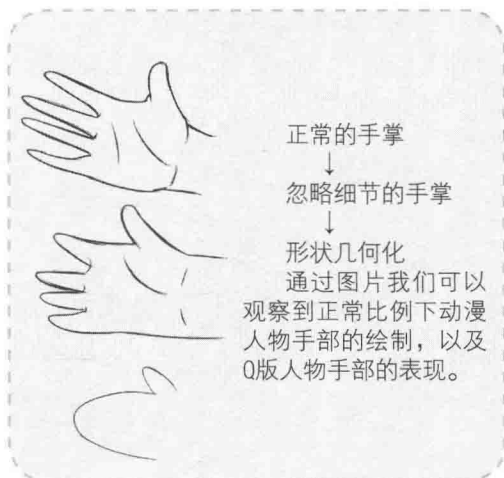 正常的手掌
↓
忽略细节的手掌
↓
形状几何化
通过图片我们可以
观察到正常比例下动漫
人物手部的绘制，以及
Q版人物手部的表现。